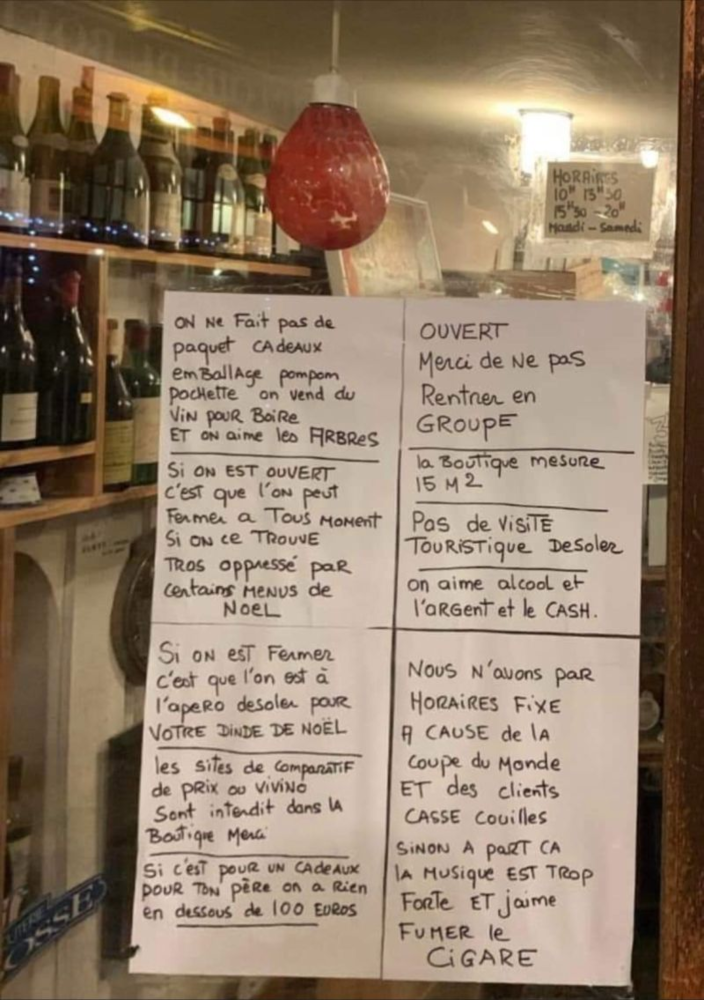 HORAIRES
10H 13H30
15H30 - 20H
Mardi - Samedi
ON Ne Fait pas de
paquet CAdeAUX
emBallAge pompom
pochette on vend du
VIN POUR BOIRE
ET ON aime les ARBRES
Si ON EST OUVERT
c'est que l'on peut
Fermer a Tous MOMENT
Si ON ce TROUVE
TROS oppressé paR
Certains MENUS de
NOEL
Si ON esT Fermer
c'est que l'on est à
l'apeRO desoler pour
VOTRE DINDE DE NOËL
les sites de ComparaTiF
de pRiX ou ViViNO
Sont interdit dans lA
Boutique Merci
Si c'est pour UN CAdeAUX
pour TON pèRe on a Rien
en dessous de 100 EUROS
OUVERT
Merci de Ne pas
Rentrer en
GROUPE
la Boutique mesure
15 M2
Pas de VISITE
TOURISTique DesoleR
on aime alcool et
l'aRgent et le CASH.
NOUS N'avons paR
HORAiRES FiXE
A CAUSE de lA
Coupe du Monde
ET des clients
CASSE Couilles
SiNON A paRT CA
lA Musique EST TROP
Forte ET jaime
FUMER le
CiGARE
OSSE